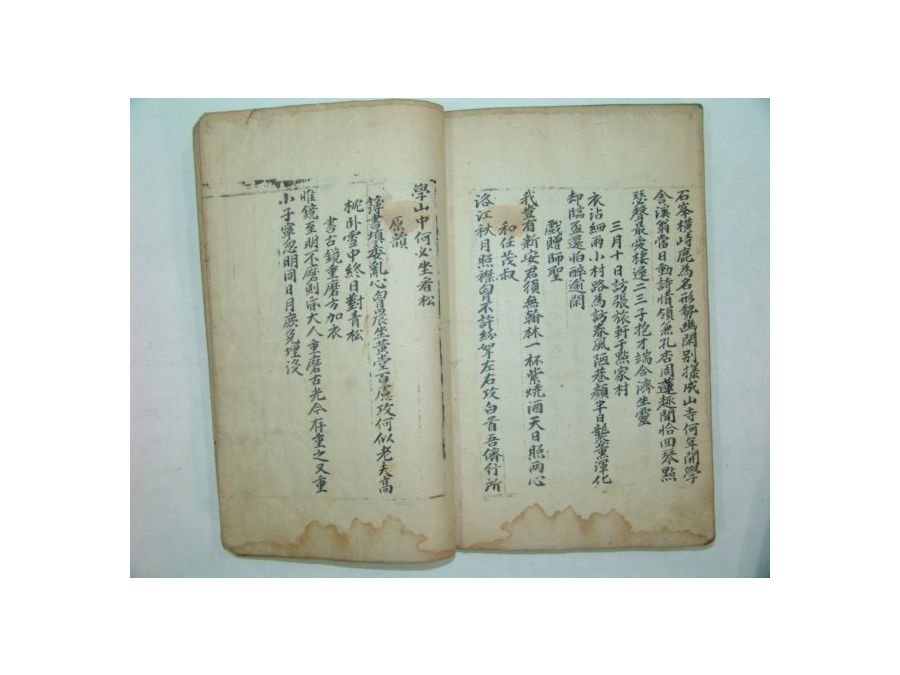 石峯橫峙鹿爲名形勢幽閑別㨾成山寺何年開學
舍溪翁當日動詩情領無孔杏周蓮趣聞恰回琴點
瑟聲最愛棲遲二三子抱才端合濟生靈
三月十日訪張旅軒于點家村
衣沾細雨小村路爲訪春風陋巷顏半日襲薰渾化
却臨盃還怕醉逾閑
戲贈師聖
我豈有新安君須無翰林一杯紫燒酒天日照兩心
和任茂叔
洛江秋月照襟胷不許紛挐左右攻白首吾儕行所
學山中何必坐看松
原韻
簿書塡委亂心胷晨坐黃堂百慮攻何似老夫高
枕卧雪中終日對靑松
書古鏡重磨方加衣
唯鏡至明不磨則 大人重磨古光今存重之又重
小子寧忽明同日月庶免埋沒